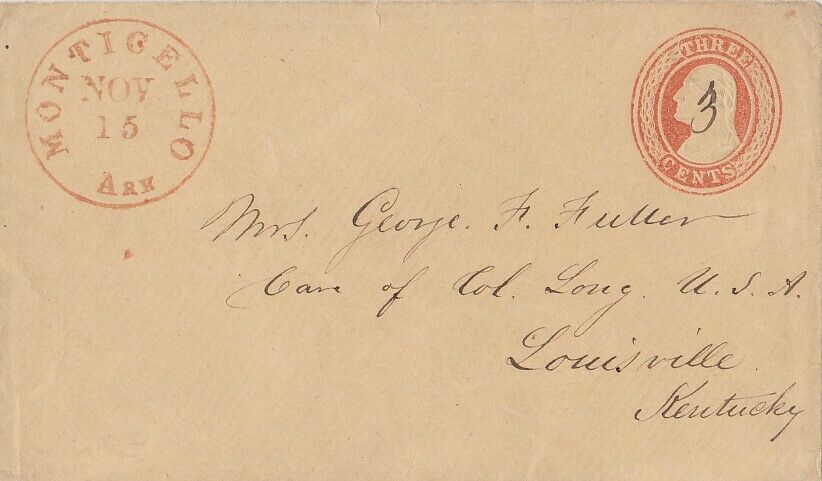 MONTICELLO
NOV
15
ARK
THREE
3
CENTS
Mrs. George. F. Fuller
Care of Col. Long. U. S. A.
Louisville
Kentucky